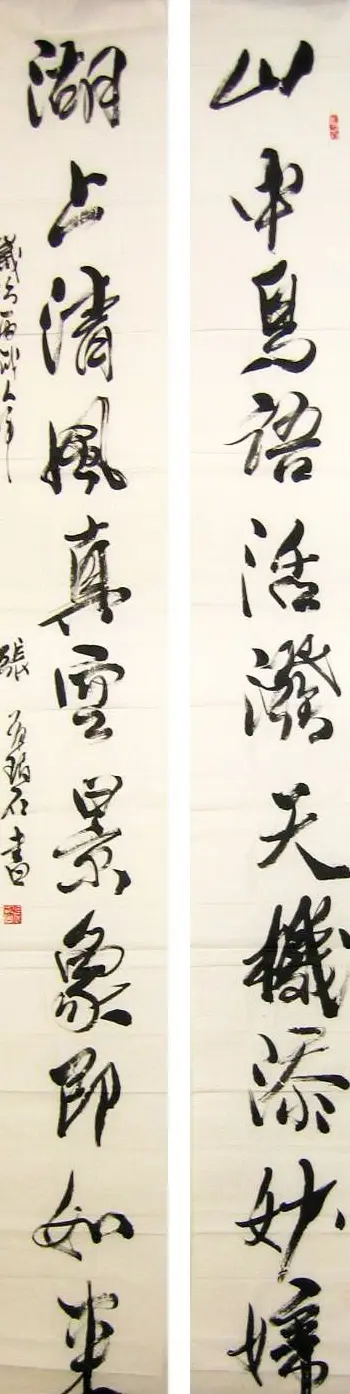 山中鳥語活潑天機添妙
湖上清風真空景象即如来
歲丙戌
張石書